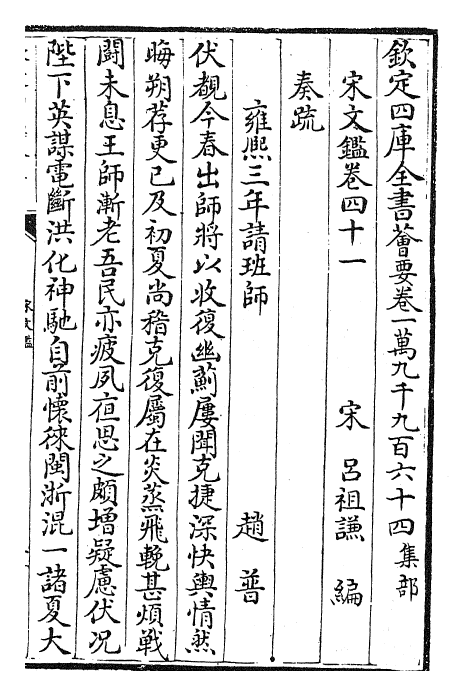 欽定四庫全書薈要卷一萬九千九百六十四集部
宋文鑑卷四十一
宋 呂祖謙 編
奏疏
雍熙三年請班師
趙 普
伏覩今春出師將以收復幽薊屢聞克捷深快輿情然
晦朔荐更已及初夏尚稽克復屬在炎蒸飛輓甚煩戰
鬭未息王師漸老吾民亦疲夙夜思之頗增疑慮伏况
陛下英謀電斷洪化神馳自前懷徠閩浙混一諸夏大